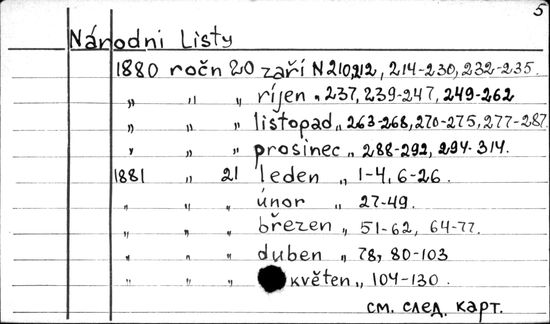 5
Národni Listy
1880 ročn 20 zaří N 210,212, 214-230, 232-235.
„ „ „ ríjen „ 237, 239-247, 249-262
„ „ „ listopad „ 263-268, 270-275, 277-287
„ „ „ prosinec „ 288-292, 294-314.
1881 „ 21 leden „ 1-4, 6-26.
„ „ „ únor „ 27-49.
„ „ „ březen „ 51-62, 64-77.
„ „ „ duben „ 78, 80-103
„ „ „ květen „ 104-130.
см. след. карт.